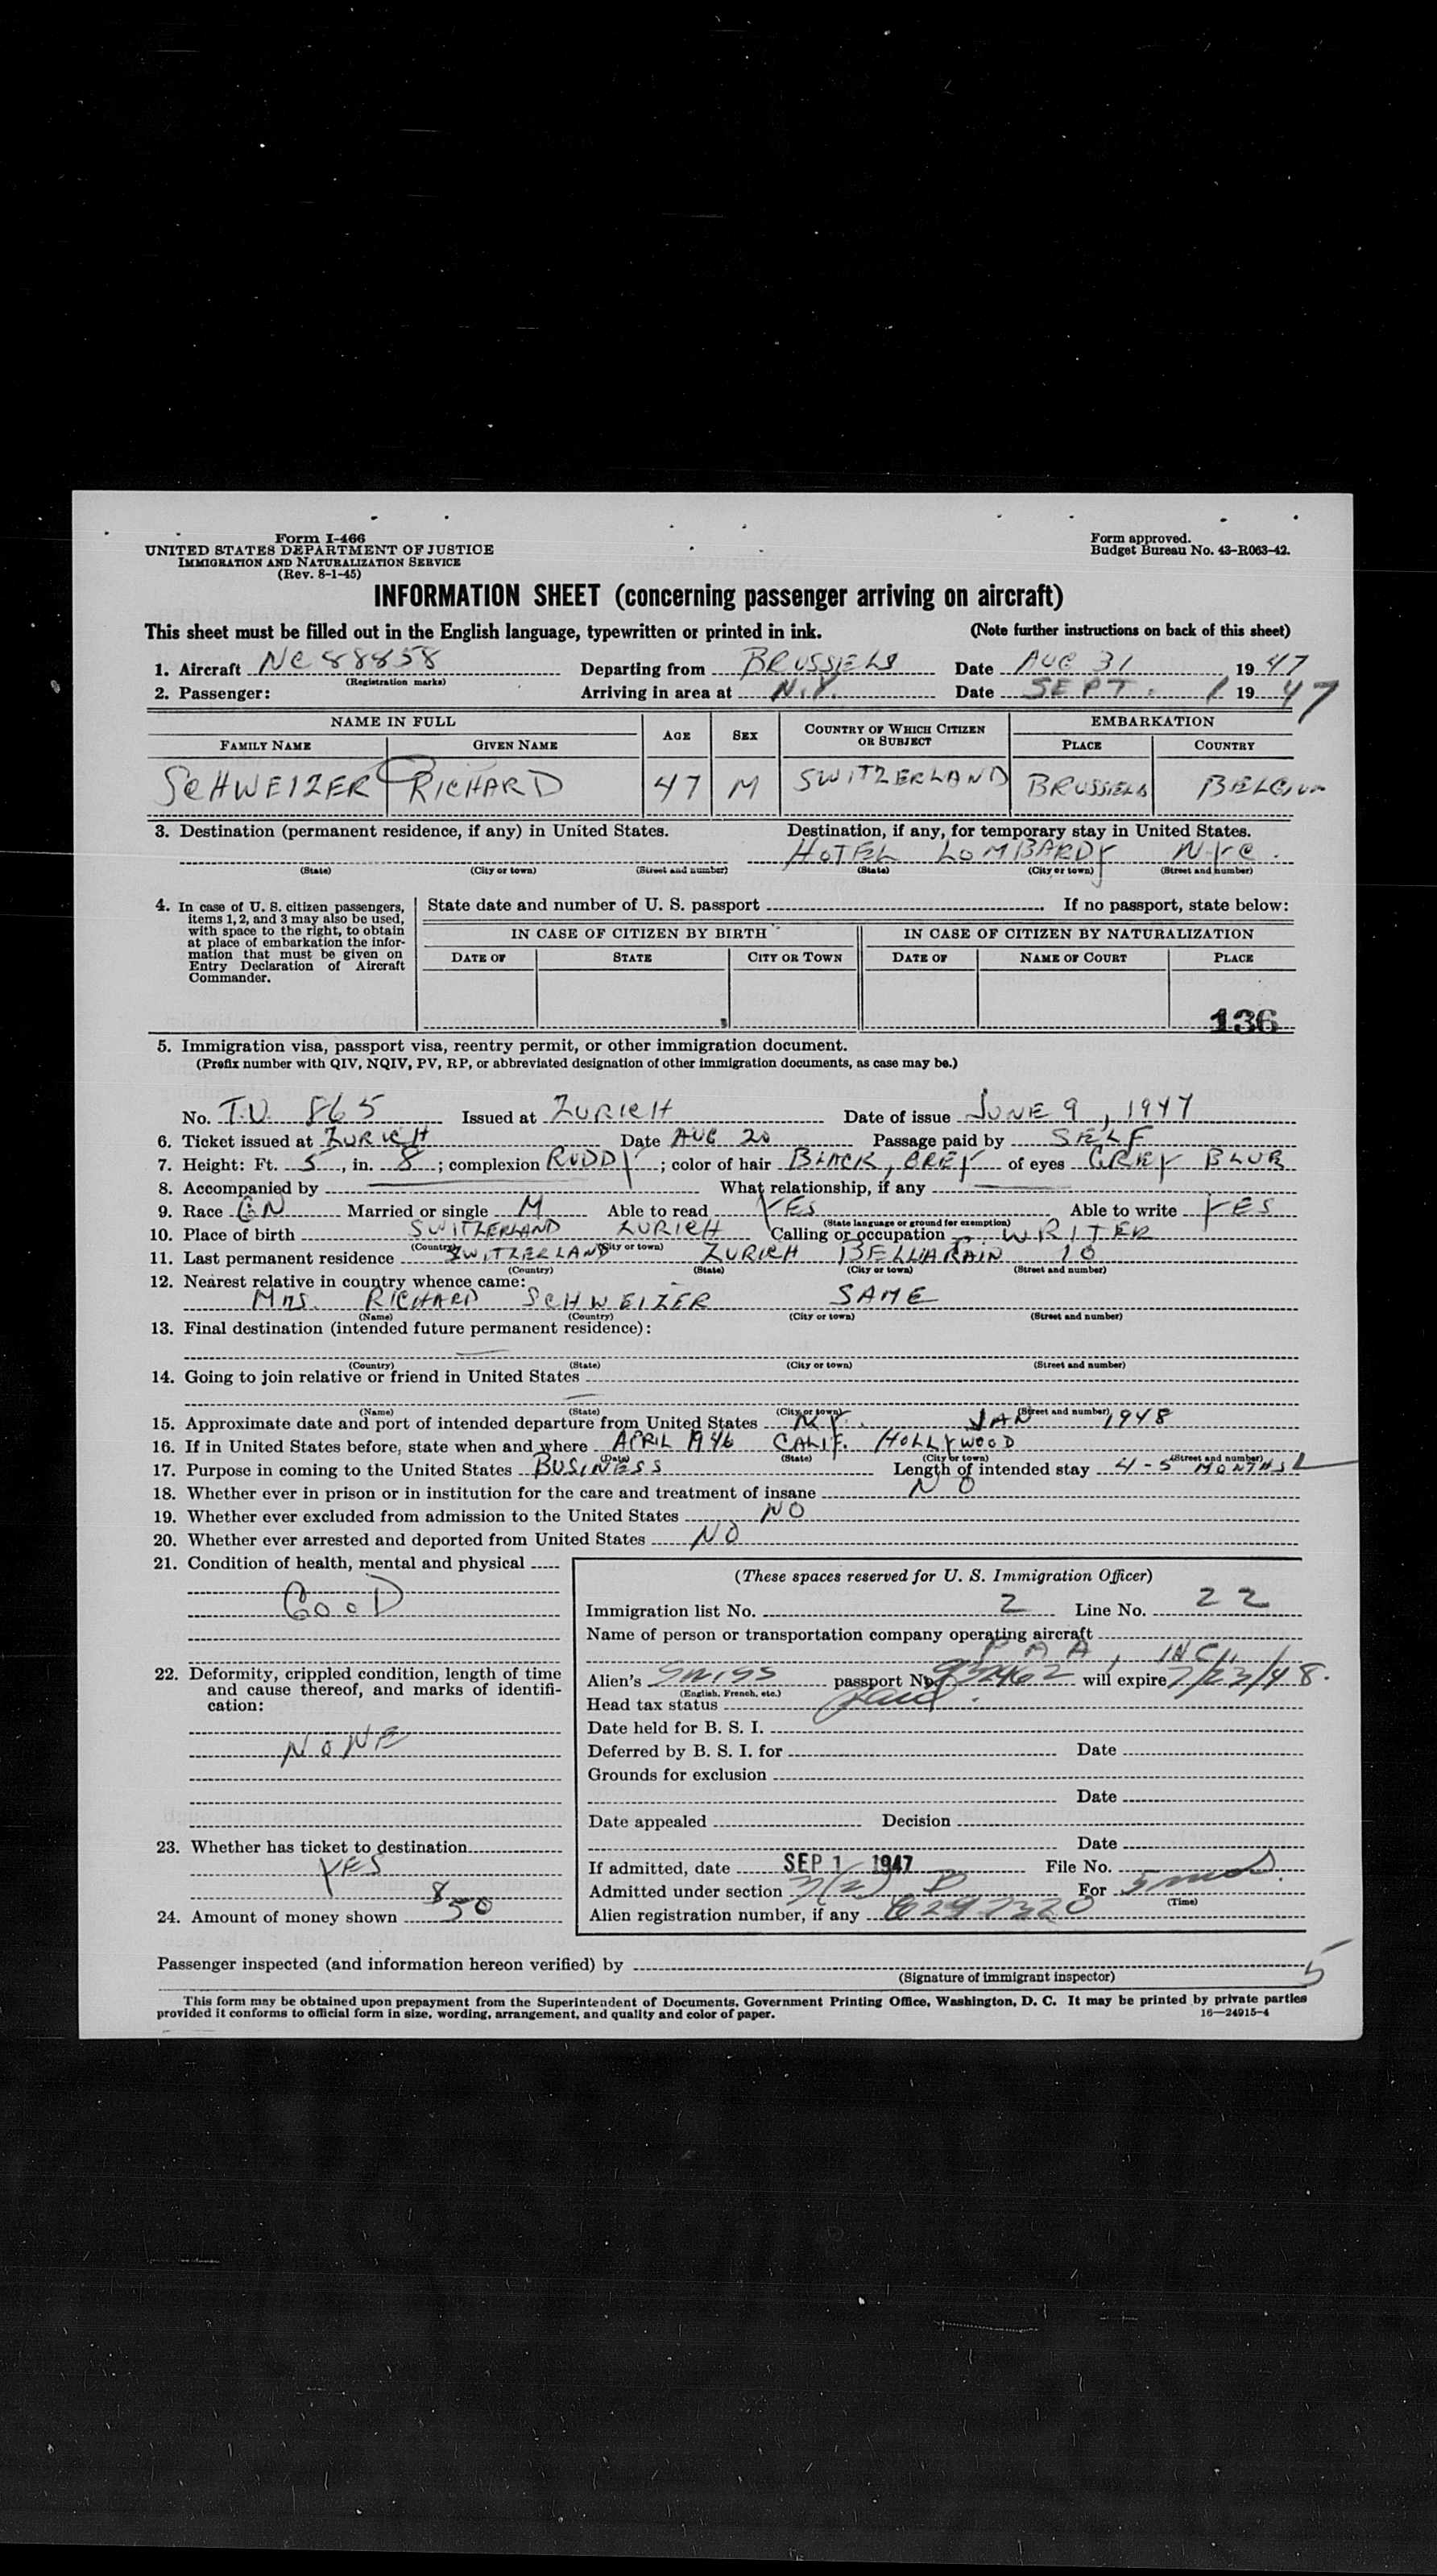 Form I-466
UNITED STATES DEPARTMENT OF JUSTICE
IMMIGRATION AND NATURALIZATION SERVICE
(Rev. 8-1-45)
Form approved.
Budget Bureau No. 43-R063-42.
INFORMATION SHEET (concerning passenger arriving on aircraft)
This sheet must be filled out in the English language, typewritten or printed in ink. (Note further instructions on back of this sheet)
1. Aircraft NC 88858 Departing from BRUSSELS Date AUG 31 1947
(Registration marks)
2. Passenger: Arriving in area at N.Y. Date SEPT. 1 1947
NAME IN FULL AGE SEX COUNTRY OF WHICH CITIZEN OR SUBJECT EMBARKATION
FAMILY NAME GIVEN NAME PLACE COUNTRY
SCHWEIZER RICHARD 47 M SWITZERLAND BRUSSELS BELGIUM
3. Destination (permanent residence, if any) in United States. Destination, if any, for temporary stay in United States.
HOTEL LOMBARDY NYC.
(State) (City or town) (Street and number) (State) (City or town) (Street and number)
4. In case of U. S. citizen passengers, items 1, 2, and 3 may also be used, with space to the right, to obtain at place of embarkation the information that must be given on Entry Declaration of Aircraft Commander.
State date and number of U. S. passport If no passport, state below:
IN CASE OF CITIZEN BY BIRTH IN CASE OF CITIZEN BY NATURALIZATION
DATE OF STATE CITY OR TOWN DATE OF NAME OF COURT PLACE
136
5. Immigration visa, passport visa, reentry permit, or other immigration document.
(Prefix number with QIV, NQIV, PV, RP, or abbreviated designation of other immigration documents, as case may be.)
No. T.V. 865 Issued at ZURICH Date of issue JUNE 9, 1947
6. Ticket issued at ZURICH Date AUG 20 Passage paid by SELF
7. Height: Ft. 5, in. 8; complexion RUDDY; color of hair BLACK, GREY of eyes GREY BLUE
8. Accompanied by What relationship, if any
9. Race Married or single M Able to read YES Able to write YES
(State language or ground for exemption)
10. Place of birth SWITZERLAND ZURICH Calling or occupation WRITER
(Country) (City or town)
11. Last permanent residence SWITZERLAND ZURICH BELLARIARAIN 10
(Country) (State) (City or town) (Street and number)
12. Nearest relative in country whence came:
Mrs. RICHARD SCHWEIZER SAME
(Name) (Country) (City or town) (Street and number)
13. Final destination (intended future permanent residence):
(Country) (State) (City or town) (Street and number)
14. Going to join relative or friend in United States
(Name) (State) (City or town) (Street and number)
15. Approximate date and port of intended departure from United States N.Y. JAN 1948
16. If in United States before, state when and where APRIL 1946 CALIF. HOLLYWOOD
(Date) (State) (City or town) (Street and number)
17. Purpose in coming to the United States BUSINESS Length of intended stay 4-5 MONTHS
18. Whether ever in prison or in institution for the care and treatment of insane NO
19. Whether ever excluded from admission to the United States NO
20. Whether ever arrested and deported from United States NO
21. Condition of health, mental and physical
GOOD
22. Deformity, crippled condition, length of time and cause thereof, and marks of identification:
NONE
23. Whether has ticket to destination
YES
24. Amount of money shown $50
(These spaces reserved for U. S. Immigration Officer)
Immigration list No. 2 Line No. 22
Name of person or transportation company operating aircraft
P A A, INC.
Alien's Swiss passport No. 95462 will expire 7/23/48.
(English, French, etc.)
Head tax status paid.
Date held for B. S. I.
Deferred by B. S. I. for Date
Grounds for exclusion
Date
Date appealed Decision
Date
If admitted, date SEP 1 1947 File No.
Admitted under section 3(2) For 5 mos.
(Time)
Alien registration number, if any 6297320
Passenger inspected (and information hereon verified) by
(Signature of immigrant inspector)
5
This form may be obtained upon prepayment from the Superintendent of Documents, Government Printing Office, Washington, D. C. It may be printed by private parties
provided it conforms to official form in size, wording, arrangement, and quality and color of paper. 16—24915-4